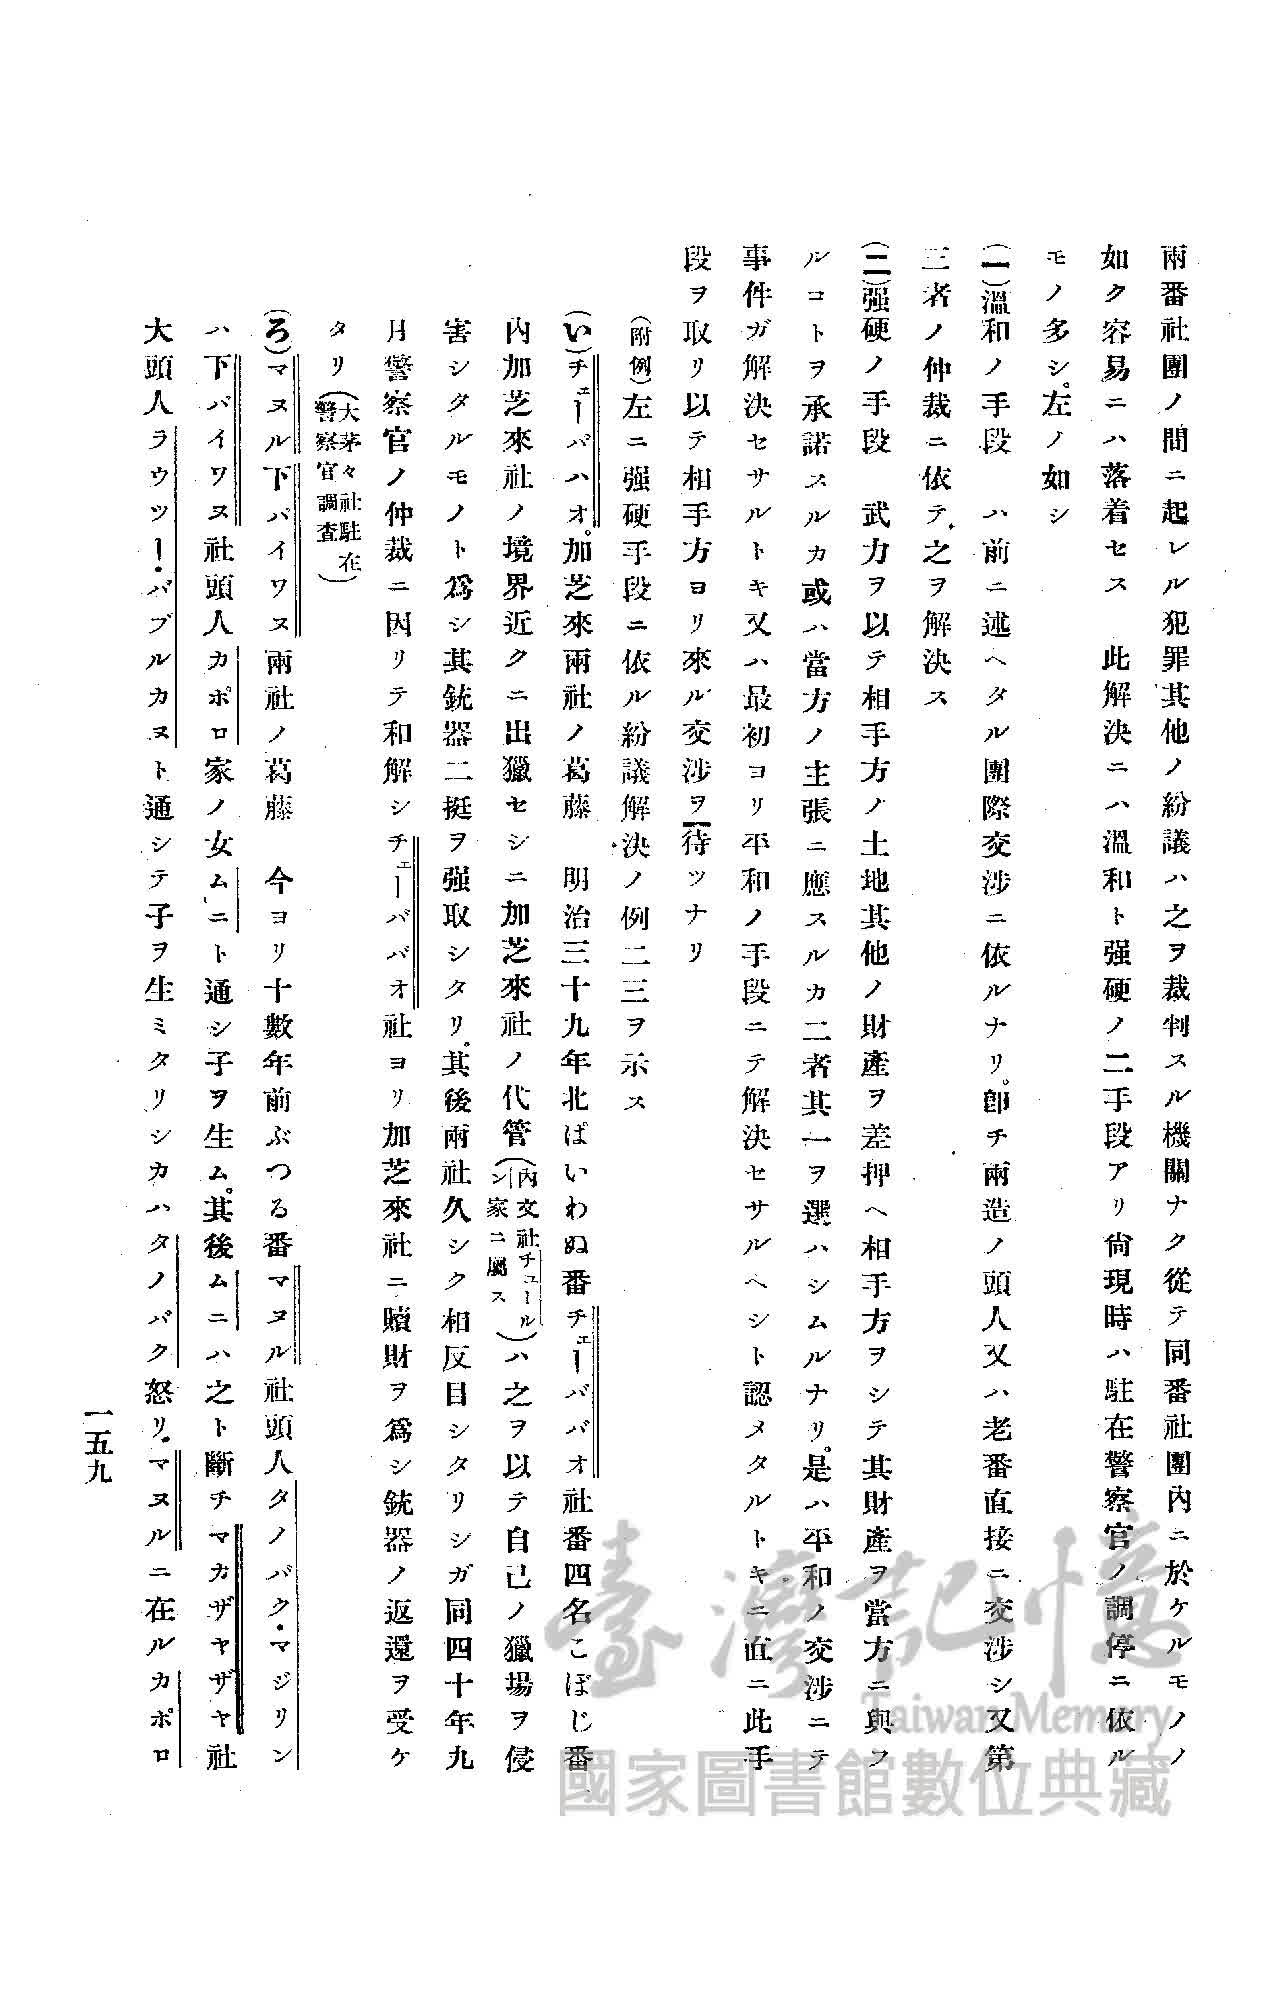 兩番社團ノ間ニ起レル犯罪其他ノ紛議ハ之ヲ裁判スル機關ナク從テ同番社團內ニ於ケルモノノ
如ク容易ニハ落着セス　此解決ニハ溫和ト强硬ノ二手段アリ尙現時ハ駐在警察官ノ調停ニ依ル
モノ多シ。左ノ如シ
(一)溫和ノ手段　ハ前ニ述ヘタル團際交涉ニ依ルナリ。卽チ兩造ノ頭人又ハ老番直接ニ交涉シ又第
三者ノ仲裁ニ依テ之ヲ解決ス
(二)强硬ノ手段　武力ヲ以テ相手方ノ土地其他ノ財產ヲ差押ヘ相手方ヲシテ其財產ヲ當方ニ與フ
ルコトヲ承諾スルカ或ハ當方ノ主張ニ應スルカ二者其一ヲ選ハシムルナリ。是ハ平和ノ交涉ニテ
事件ガ解決セサルトキ又ハ最初ヨリ平和ノ手段ニテ解決セサルヘシト認メタルトキニ直ニ此手
段ヲ取リ以テ相手方ヨリ來ル交涉ヲ待ツナリ
(附例)左ニ强硬手段ニ依ル紛議解決ノ例二三ヲ示ス
(い)チェーバハオ。加芝來兩社ノ葛藤　明治三十九年北ぱいわぬ番チェーババオ社番四名こぼじ番、
內加芝來社ノ境界近クニ出獵セシニ加芝來社ノ代管(內文社チュールシ家ニ屬ス)ハ之ヲ以テ自己ノ獵場ヲ侵
害シタルモノト爲シ其銃器二挺ヲ强取シタリ。其後兩社久シク相反目シタリシガ同四十年九
月警察官ノ仲裁ニ因リテ和解シチェーババオ社ヨリ加芝來社ニ贖財ヲ爲シ銃器ノ返還ヲ受ケ
タリ(大茅々社駐在警察官調査)
(ろ)マヌル下バイワヌ兩社ノ葛藤　今ヨリ十數年前ぶつる番マヌル社頭人タノバク・マジリン
ハ下バイワヌ社頭人カポロ家ノ女ムニト通シ子ヲ生ム。其後ムニハ之ト斷チマカザヤザヤ社
大頭人ラウツー・バブルカヌト通シテ子ヲ生ミタリシカハタノバク怒リ・マヌルニ在ルカポロ
一五九
臺灣記憶
Taiwan Memory
國家圖書館數位典藏